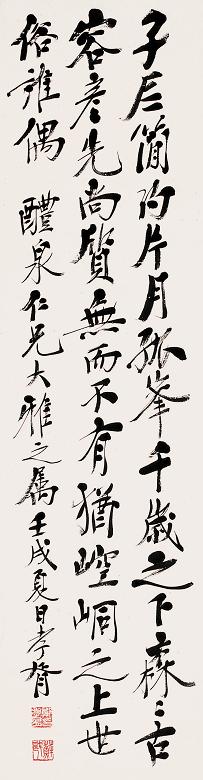 子尼簡約片月孤峯千歲之下森〻古
容彥先尚質無而不有猶崆峒之上世
俗誰偶 醴泉仁兄大雅之屬壬戌夏日孝胥